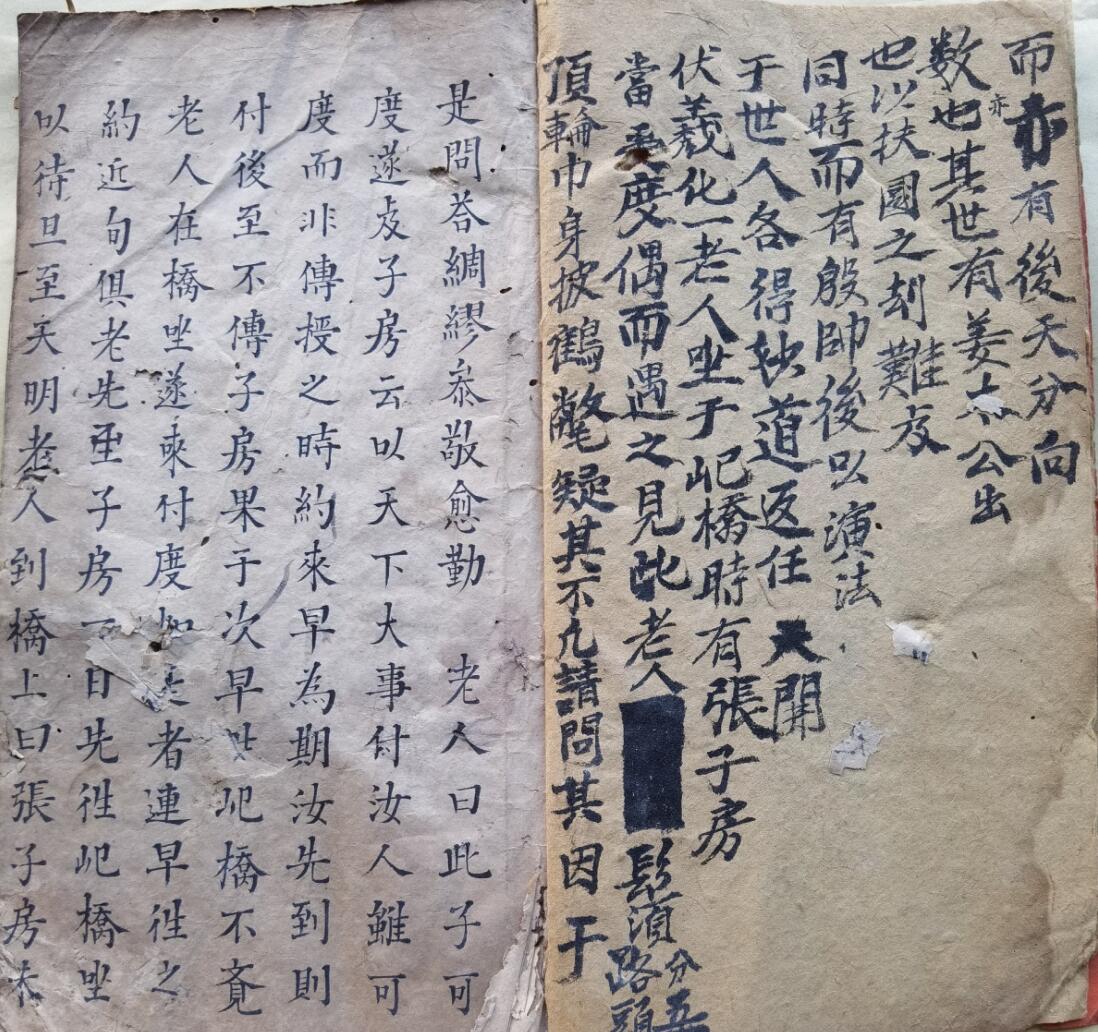 而亦有後天分向
数也亦其世有姜太公出
也以扶國之刼難友
同時而有殷帥後以演法
于世人各得秘道返任天開
伏羲化一老人坐于圯橋時有張子房
當受度偶而遇之見此老人鬚湏分五路頭
頂輪巾身披鶴氅疑其不凢請問其因于
是問荅綢繆恭敬愈勤 老人曰此子可
度遂友子房云以天下大事付汝人雖可
度而非傳授之時約來早為期汝先到則
付後至不傳子房果于次早 圯橋不
老人在橋坐遂來付度 者連早徃之
約近旬俱老先至子房一日先徃圯橋坐
以待旦至天明老人到橋上曰張子房未